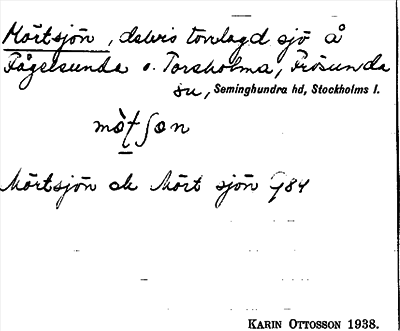 Mörtsjön, delvis torrlagd sjö å
Fågelsunda o. Torsholma, Frösunda
sn, Seminghundra hd, Stockholms l.
Mörtsjön ch Mört sjön G84
KARIN OTTOSSON 1938.